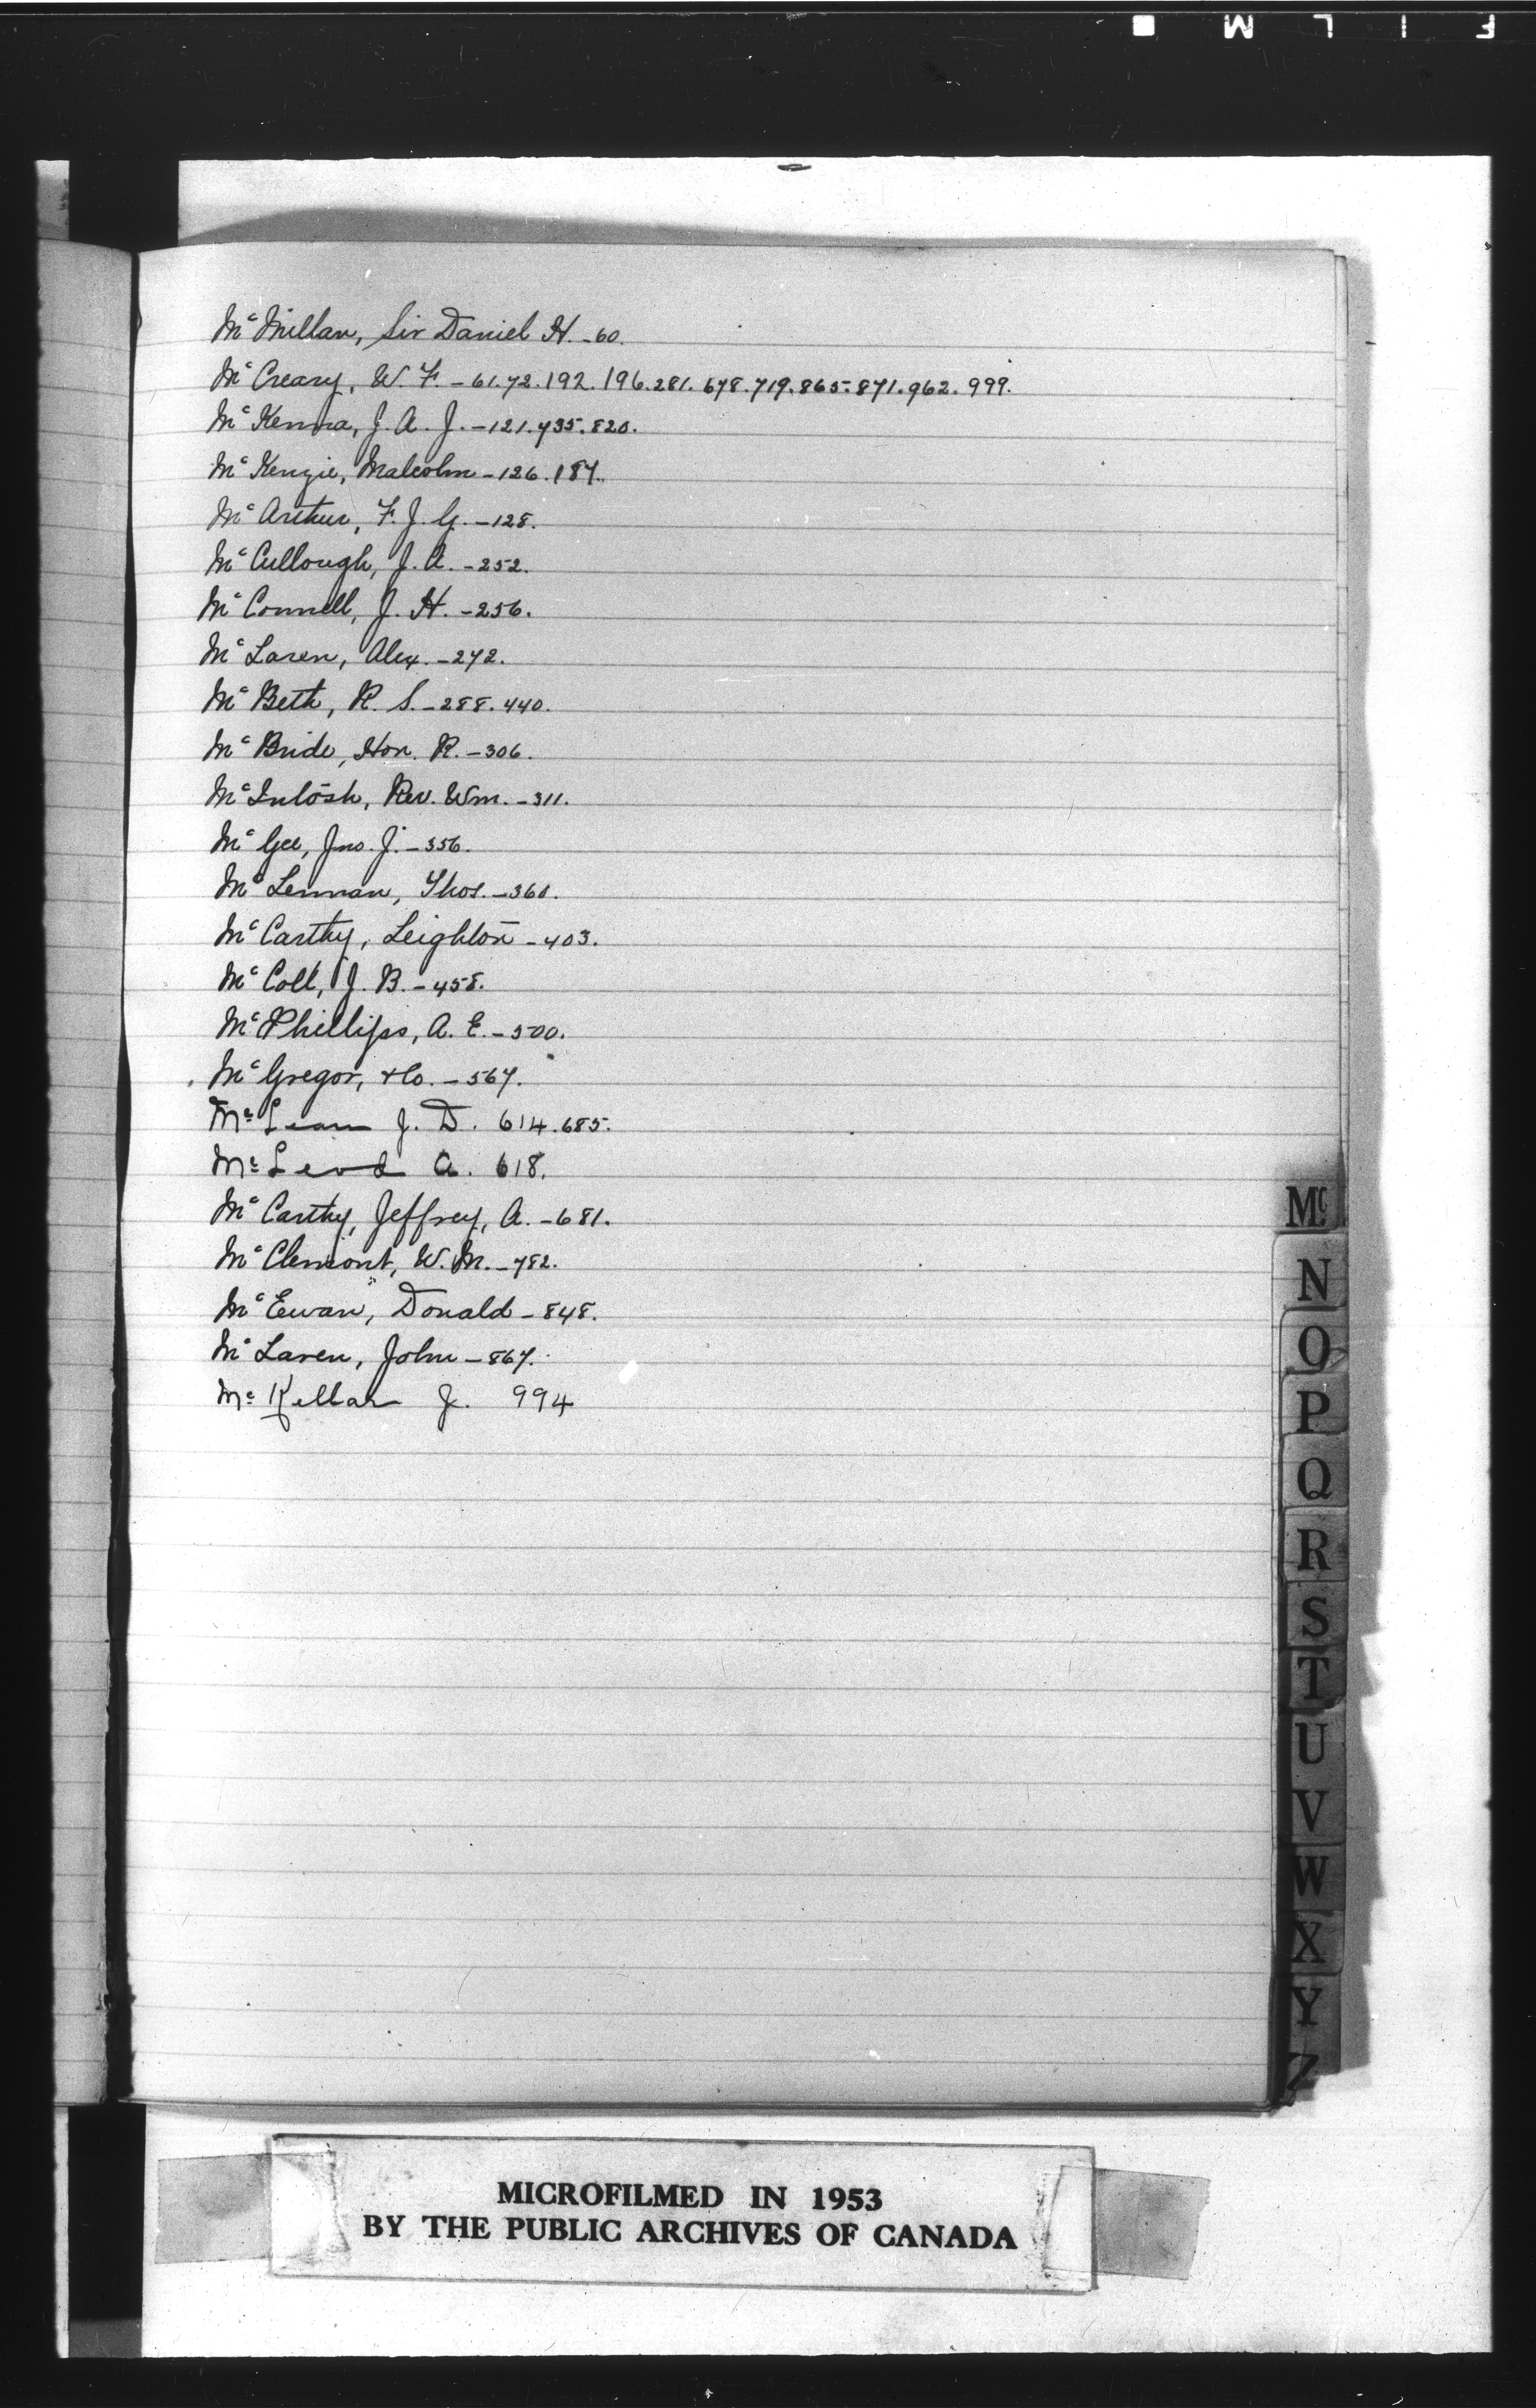 F I L M
Mc Millan, Sir Daniel H. - 60.
Mc Creary, W. F. - 61. 72. 192. 196. 281. 678. 719. 865. 871. 962. 999.
Mc Kenna, J. A. J. - 121. 735. 820.
Mc Kenzie, Malcolm - 126. 187.
Mc Arthur, F. J. G. - 128.
Mc Cullough, J. A. - 252.
Mc Connell, J. H. - 256.
Mc Laren, Alex. - 272.
Mc Beth, R. S. - 288. 440.
Mc Bride, Hon. R. - 306.
Mc Intosh, Rev. Wm. - 311.
Mc Gee, Jno. J. - 356.
Mc Lennan, Thos. - 360.
Mc Carthy, Leighton - 403.
Mc Coll, J. B. - 458.
Mc Phillips, A. E. - 500.
Mc Gregor, & Co. - 567.
Mc Lean J. D. 614. 685.
Mc Leod A. 618.
Mc Carthy, Jeffrey, A. - 681.
Mc Clemont, W. M. - 782.
Mc Ewan, Donald - 848.
Mc Laren, John - 867.
Mc Kellar J. 994
Mc
N
O
P
Q
R
S
T
U
V
W
X
Y
Z
MICROFILMED IN 1953
BY THE PUBLIC ARCHIVES OF CANADA